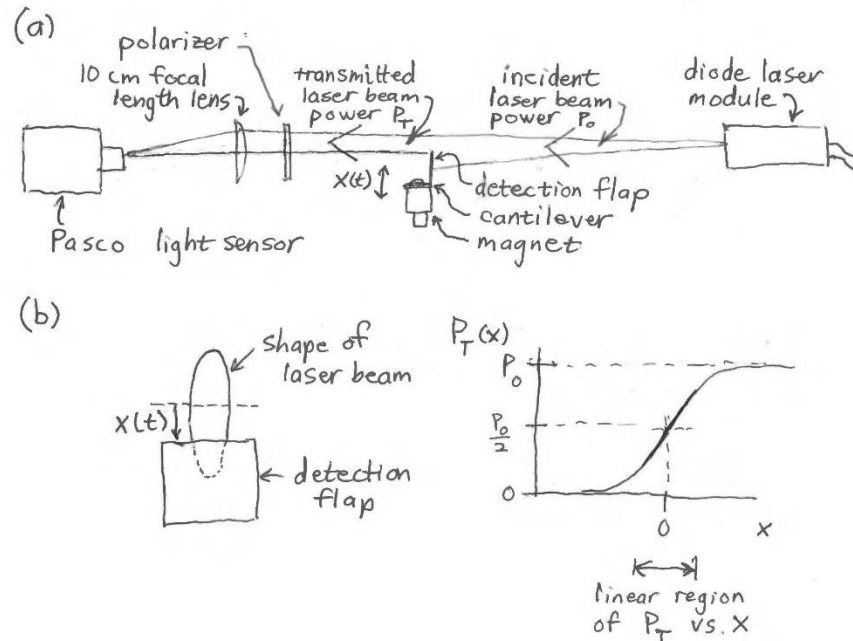 (a)
polarizer
10 cm focal
length lens
transmitted
laser beam
power P_T
incident
laser beam
power P_0
diode laser
module
X(t)
detection flap
cantilever
magnet
Pasco light sensor
(b)
shape of
laser beam
X(t)
detection
flap
P_T(x)
P_0
P_0/2
0
0
x
linear region
of P_T vs. X